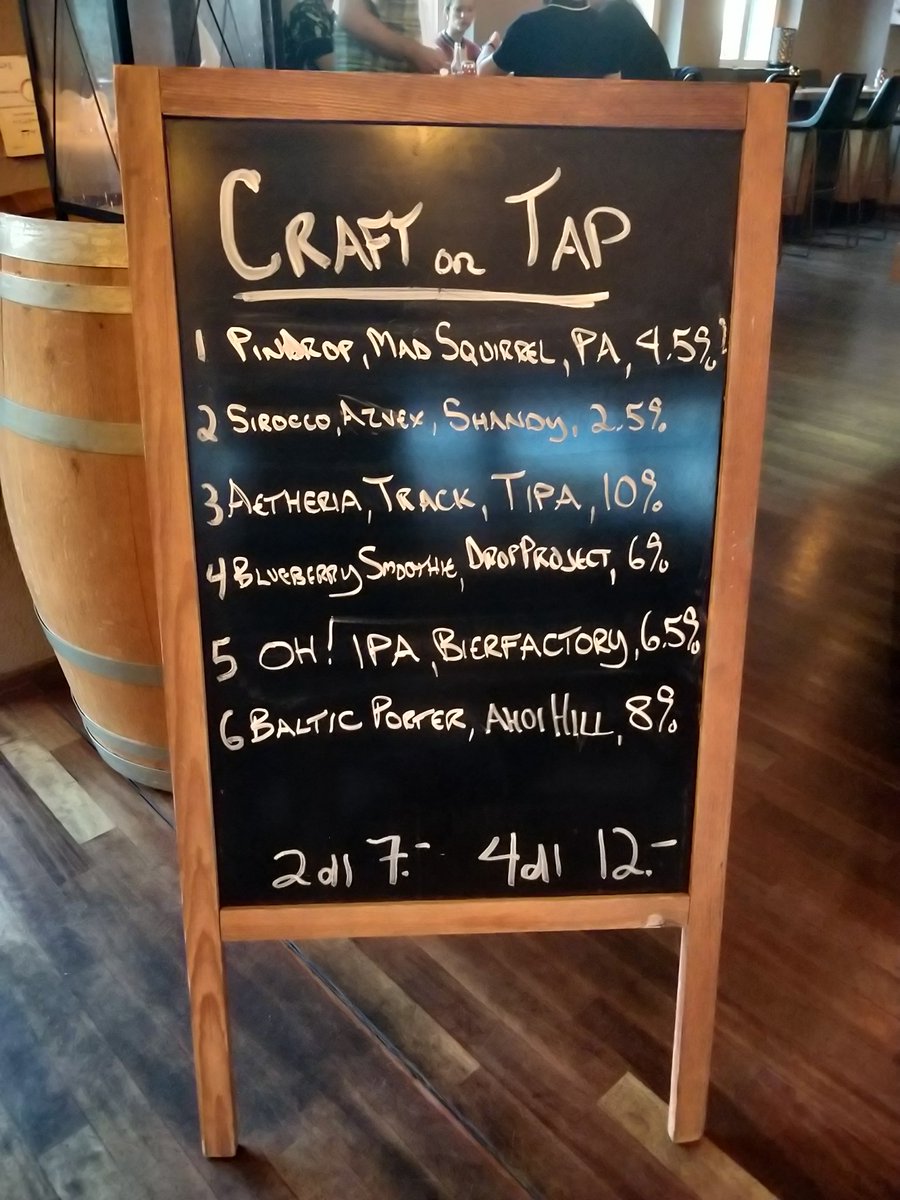 CRAFT on TAP
1 PINDROP, MAD SQUIRREL, PA, 4.5%
2 SIROCCO, AZVEX, SHANDY, 2.5%
3 AETHERIA, TRACK, TIPA, 10%
4 BLUEBERRY SMOOTHIE, DROP PROJECT, 6%
5 OH! IPA, BIERFACTORY, 6.5%
6 BALTIC PORTER, AHOI HILL, 8%
2dl 7.- 4dl 12.-